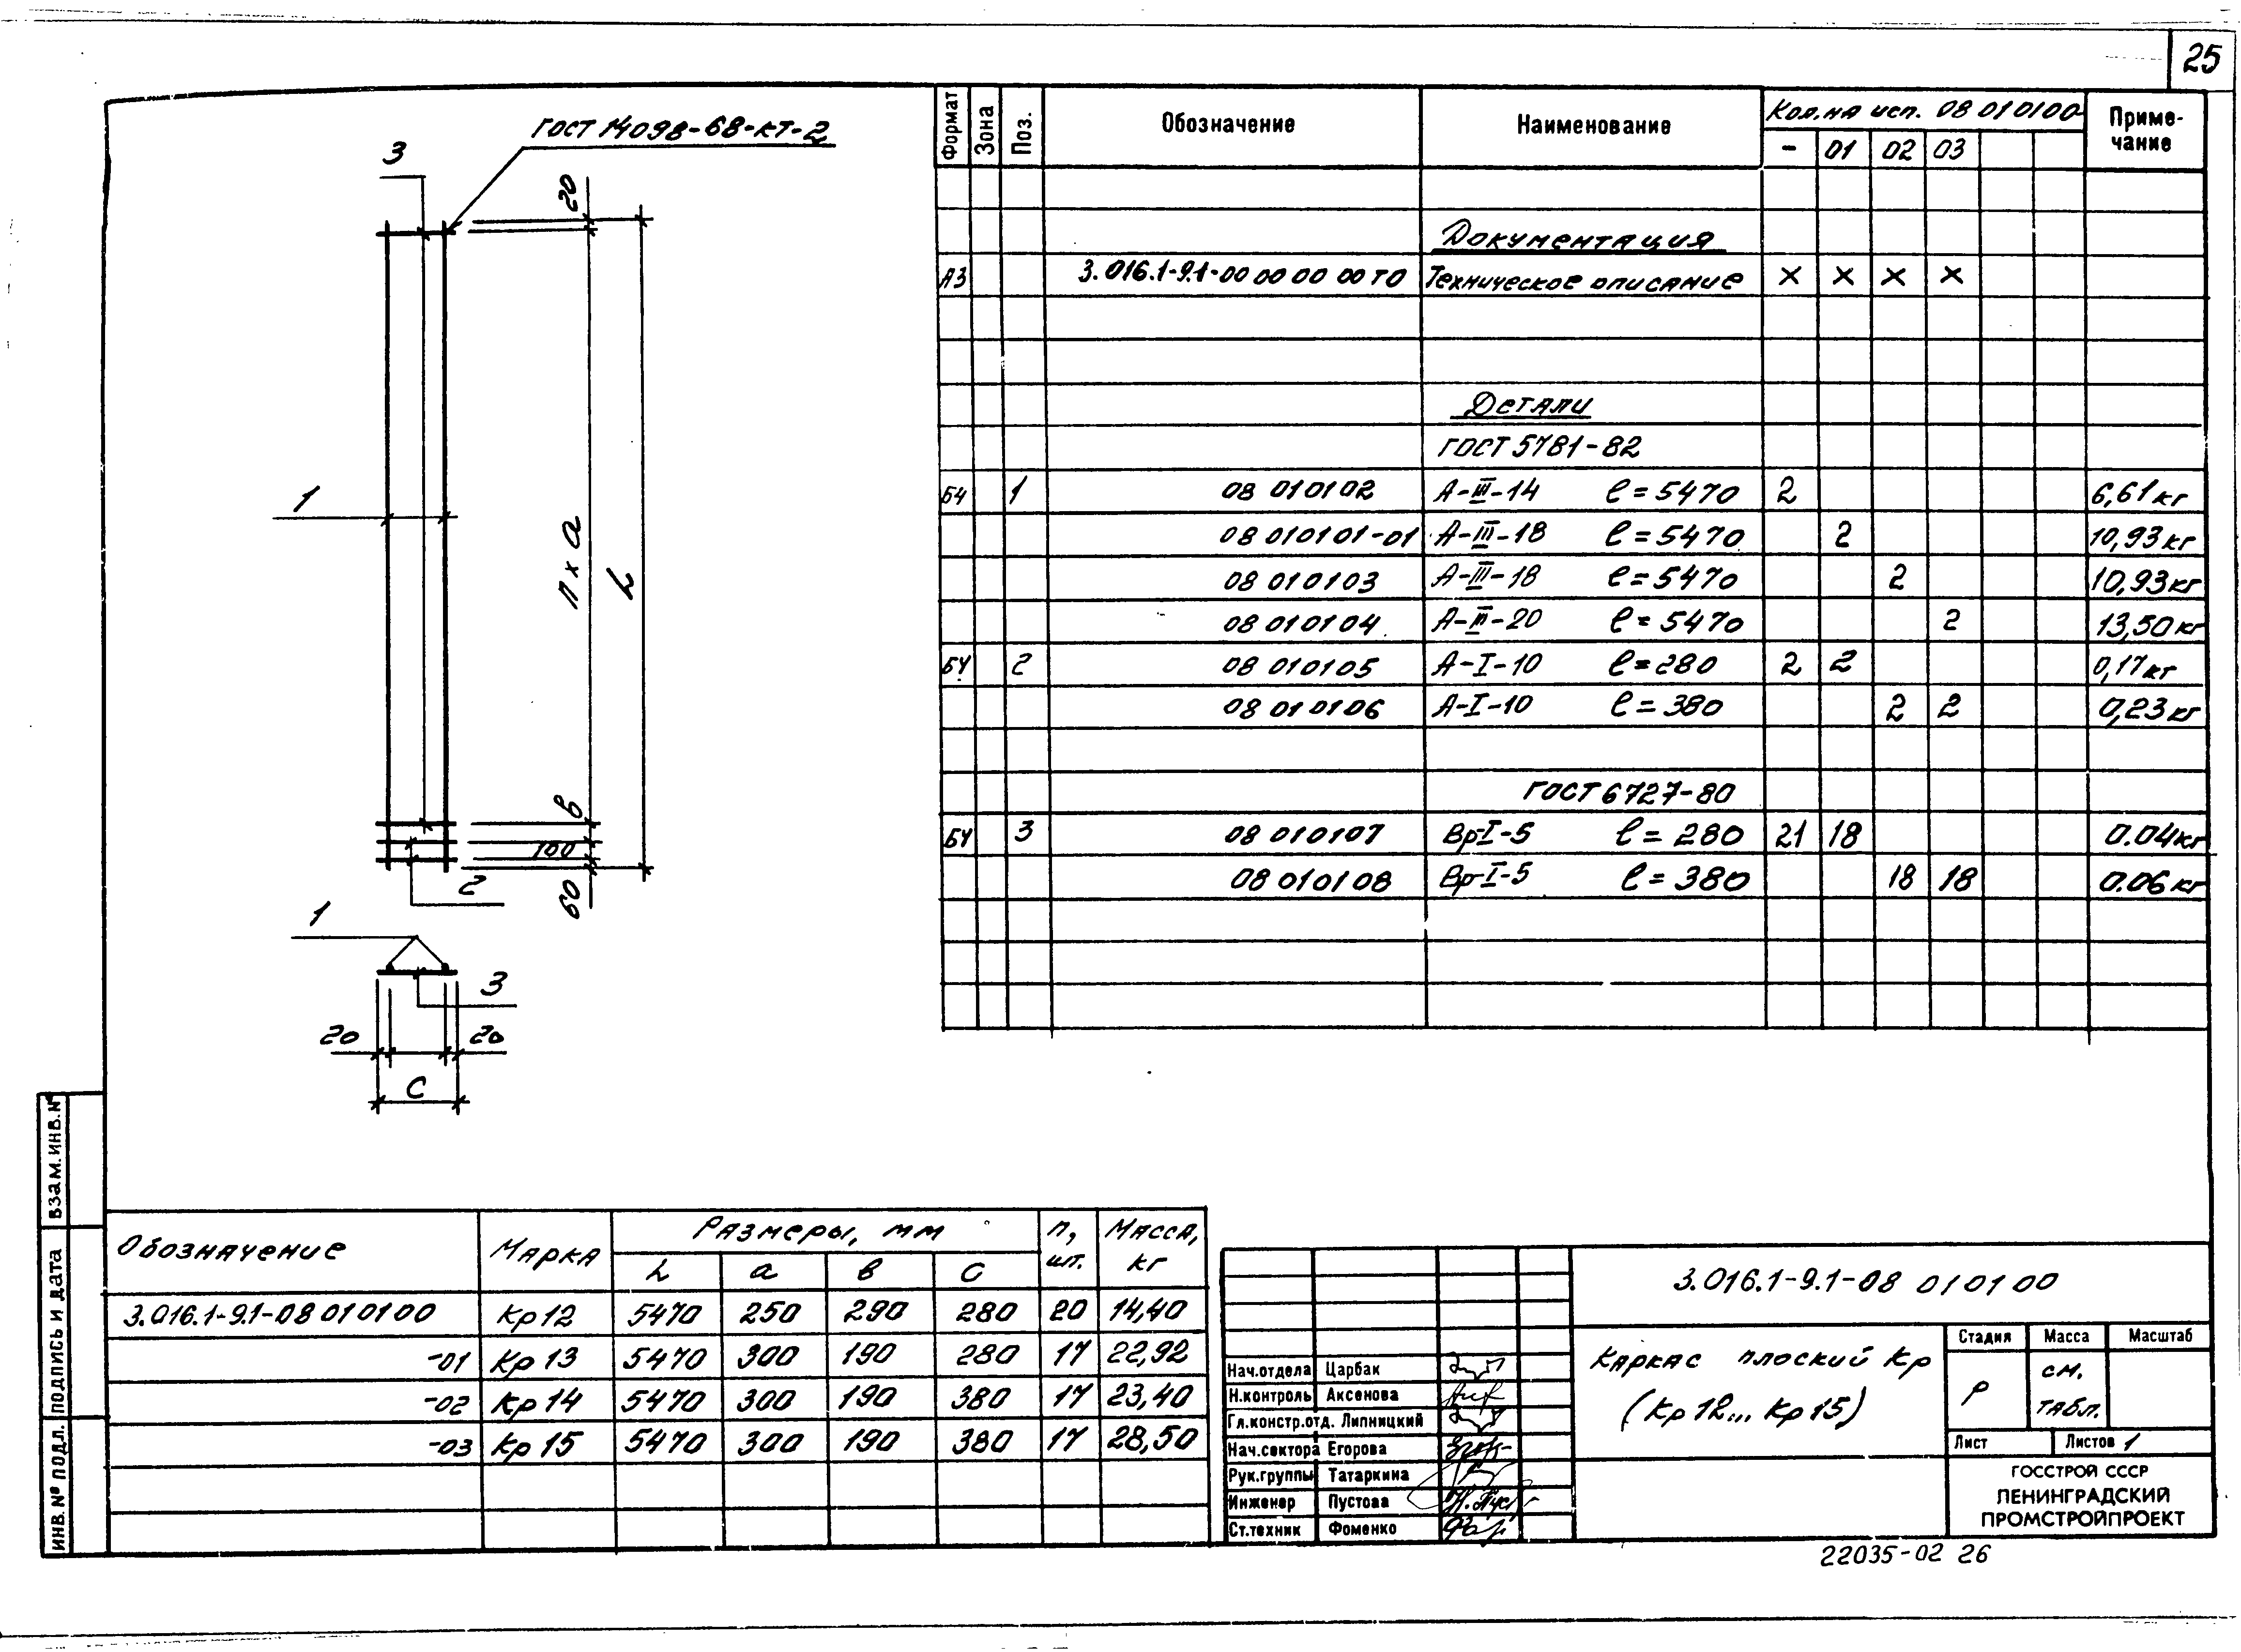 25
ГОСТ 14098-68-КТ-2
3
20
1
n x a
L
в
100
2
60
1
3
20
20
С
Формат Зона Поз. Обозначение Наименование Кол. на исп. 08 010100 Приме-
чание
- 01 02 03
Документация
А3 3.016.1-9.1-00 00 00 00 ТО Техническое описание × × × ×
Детали
ГОСТ 5781-82
БЧ 1 08 010102 А-III-14 ℓ=5470 2 6,61 кг
08 010101-01 А-III-18 ℓ=5470 2 10,93 кг
08 010103 А-III-18 ℓ=5470 2 10,93 кг
08 010104 А-III-20 ℓ=5470 2 13,50 кг
БЧ 2 08 010105 А-I-10 ℓ=280 2 2 0,17 кг
08 010106 А-I-10 ℓ=380 2 2 0,23 кг
ГОСТ 6727-80
БЧ 3 08 010107 Вр-I-5 ℓ=280 21 18 0.04 кг
08 010108 Вр-I-5 ℓ=380 18 18 0.06 кг
Обозначение Марка Размеры, мм n, шт. Масса, кг
L a в С
3.016.1-9.1-08 010100 Кр12 5470 250 290 280 20 14,40
-01 Кр13 5470 300 190 280 17 22,92
-02 Кр14 5470 300 190 380 17 23,40
-03 Кр15 5470 300 190 380 17 28,50
3.016.1-9.1-08 010100
Каркас плоский Кр
(Кр12... Кр15)
Стадия Масса Масштаб
Р см.
табл.
Лист Листов 1
ГОССТРОЙ СССР
ЛЕНИНГРАДСКИЙ
ПРОМСТРОЙПРОЕКТ
Нач.отдела Царбак
Н.контроль Аксенова
Гл.констр.отд. Липницкий
Нач.сектора Егорова
Рук.группы Татаркина
Инженер Пустова
Ст.техник Фоменко
ИНВ.№ ПОДЛ. ПОДПИСЬ И ДАТА ВЗАМ.ИНВ.№
22035-02 26